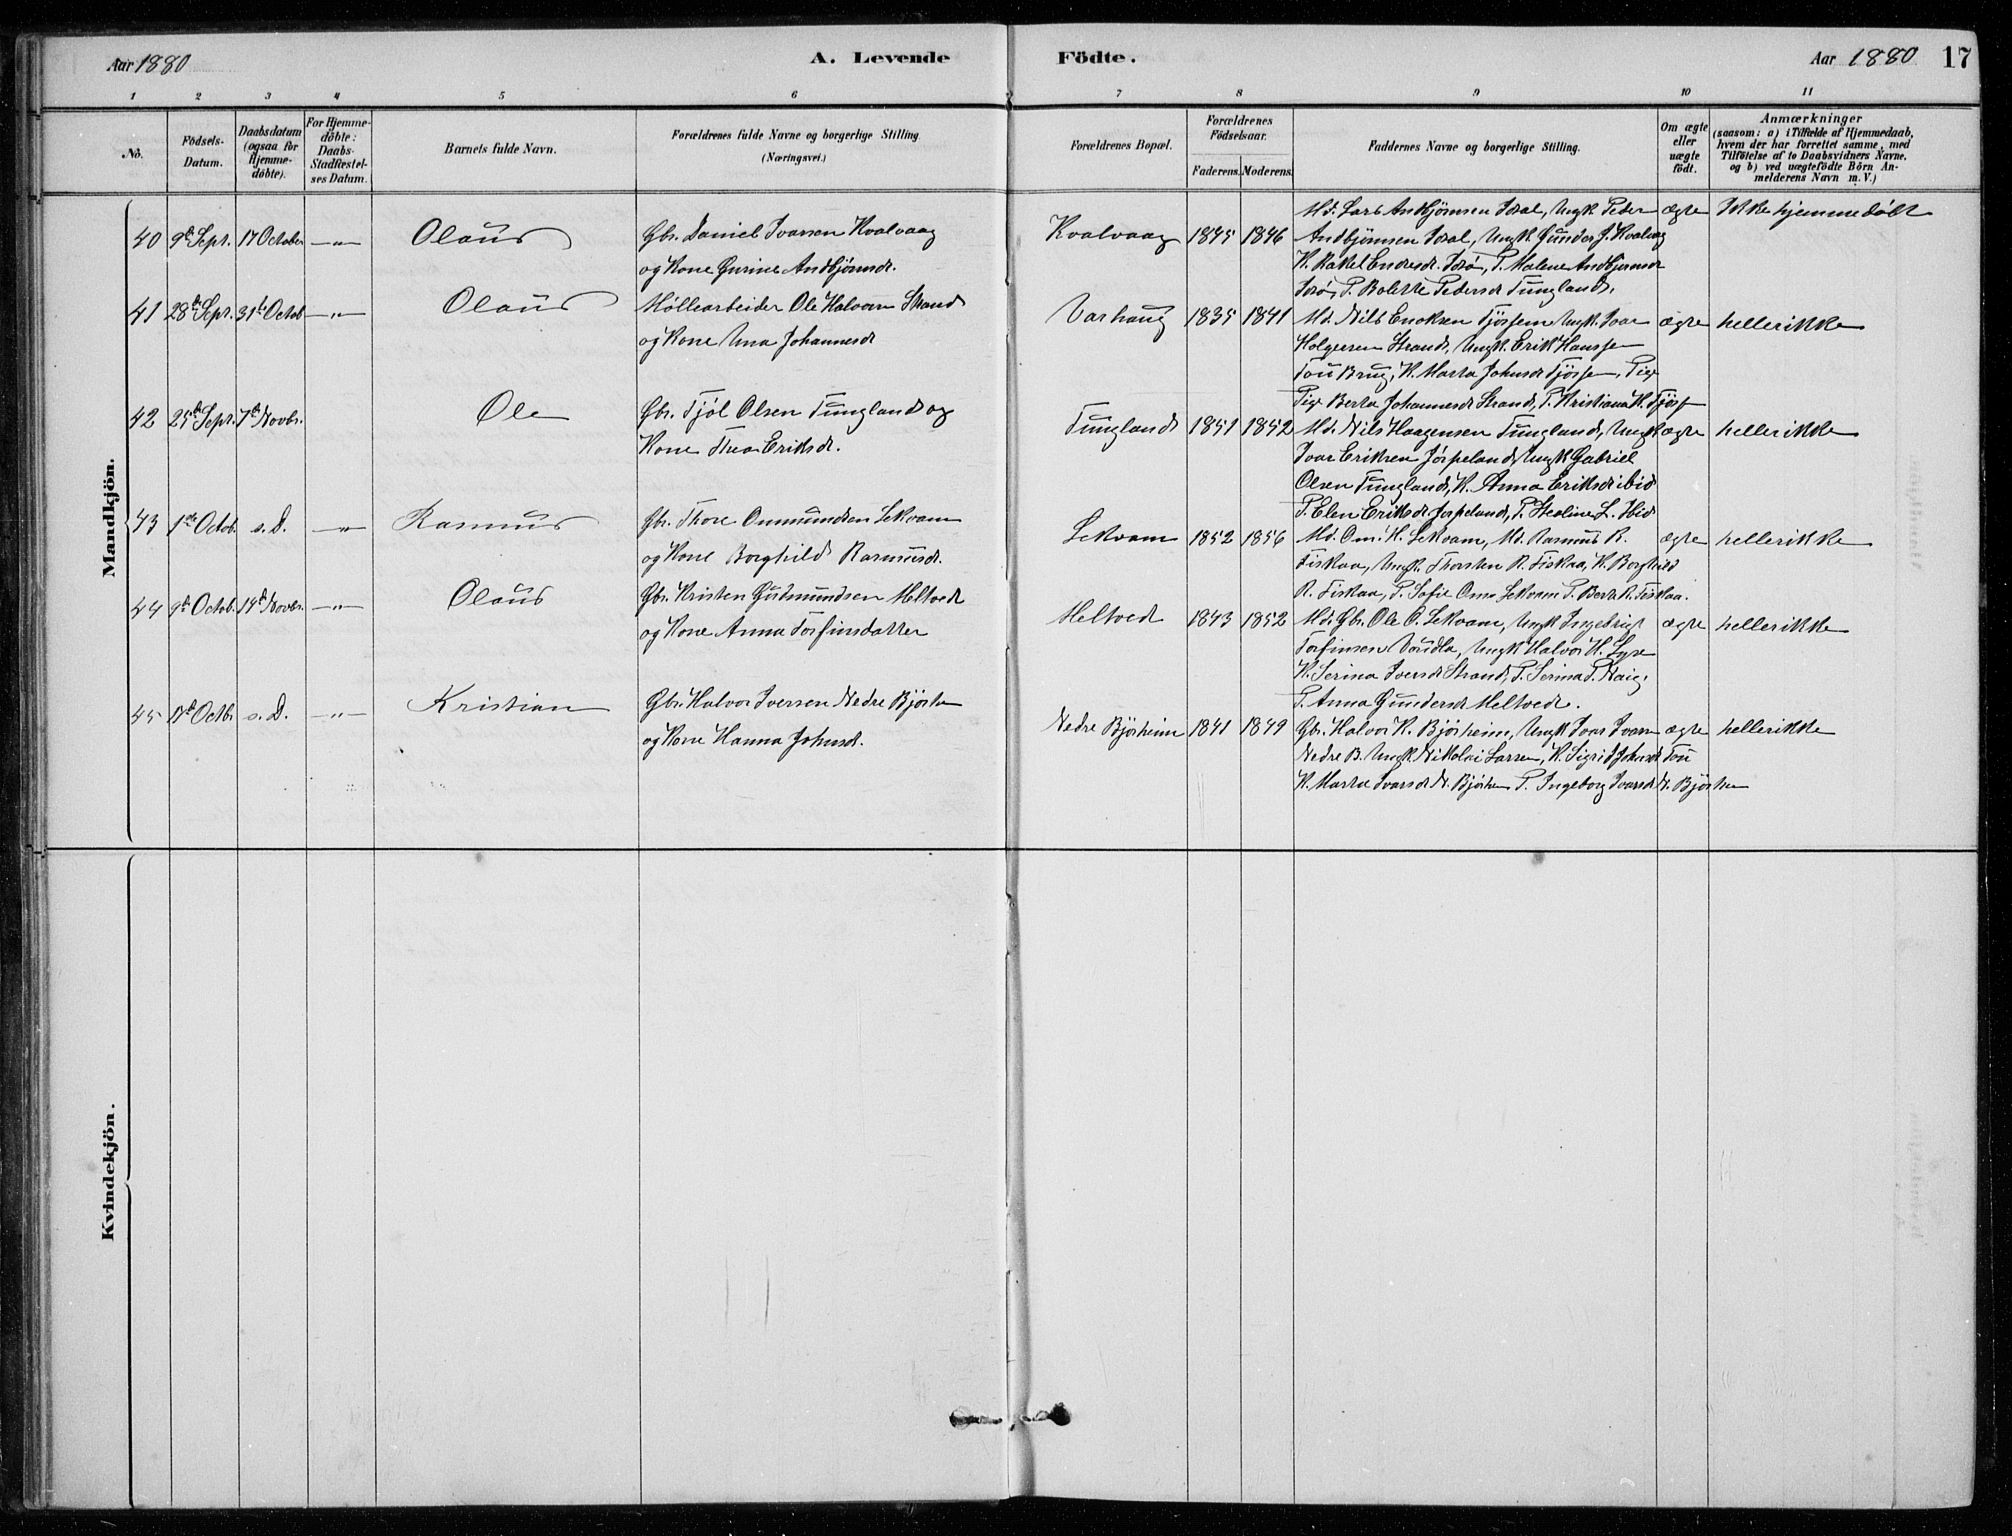 Aar 1880
A. Levende
Födte.
Aar 1880 17
1 2 3 4 5 6 7 8 9 10 11
No.
Födsels-
Datum.
Daabsdatum
(ogsaa for
Hjemme-
döbte).
For Hjemme-
döbte:
Daabs-
Stadfæstel-
ses Datum.
Barnets fulde Navn.
Forældrenes fulde Navne og borgerlige Stilling.
(Næringsvei.)
Forældrenes Bopæl.
Forældrenes
Födselsaar.
Faderens. Moderens.
Faddernes Navne og borgerlige Stilling.
Om ægte
eller
uægte
födt.
Anmærkninger
(saasom: a) i Tilfælde af Hjemmedaab,
hvem der har forrettet samme, med
Tilföielse af to Daabsvidners Navne,
og b) ved uægtefödte Börn An-
melderens Navn m. V.)
Mandkjön.
40 9de Sept. 17 October —"— Olaus
Gbr. Daniel Ivarsen Kvalvaag
og Kone Gurine Andbjörnsdr.
Kvalvaag 1845 1846
Md. Lars Andbjörnsen Idsal, Ungk. Peder
Andbjörnsen Idsal, Ungk. Gunder J. Kvalvag
K. Rakel Endresdr. Idsö, P. Malene Andbjörnsdr
Idsö, P. Bolette Pedersdr Tungland.
ægte Ikke hjemmedöbt
41 28de Sept. 31te Octob —"— Olaus
Möllearbeider Ole Halvorsen Strand
og Kone Una Johannesdr
Varhaug 1835 1841
Md. Nils Enoksen Tjössem Ungk. Ivar
Holgersen Strand, Ungk. Erik Hanssen
Tou Brug, K. Marta Johnsdr Tjössem, Pige
Pige Berta Johannesdr Strand, P. Kristiana H. Tjöss
ægte hellerikke
42 25de Sept. 7de Novbr. Ole
Gbr. Tjöl Olsen Tungland og
Kone Thea Eriksdr.
Tungland 1851 1852
Md. Nils Haagensen Tungland, Ungk
Ivar Eriksen Jörpeland, Ungk Gabriel
Olsen Tungland, K. Anna Eriksdr ibid
P. Elen Eriksdr Jörpeland, P. Stesine L. Ibid
ægte hellerikke
43 1ste Octob. s. D. —"— Rasmus
Gbr. Thore Ommundsen Lekvam
og Kone Borghild Rasmusdr.
Lekvam 1852 1856
Md. Om. H. Lekvam, Md. Rasmus R.
Fiskaa, Ungk. Thorsten R. Fiskaa, K. Borghild
R. Fiskaa, P. Sofie Oms Lekvam P. Berta R. Fiskaa.
ægte hellerikke
44 9de Octob. 14de Novbr. —"— Olaus
Gbr. Kristen Gudmundsen Heltved
og Kone Anna Torfinsdatter
Heltved 1843 1852
Md. Gbr. Ole O. Lekvam, Ungk Ingebrigt
Torfinsen Voudla, Ungk Halvor H. Lyse
K. Serina Iversdr Strand, P. Serina T. Haig.
P. Anna Gundersdr Heltved.
ægte hellerikke
45 17de Octbr s. D. —"— Kristian
Gbr. Halvor Iversen Nedre Björhm
og Kone Hanna Johnsdr.
Nedre Björheim 1841 1849
Gbr. Halvor K. Björheim, Ungk Ivar Ivarsen
Nedre B. Ungk. Nikolai Larsen, K. Sigrid Johnsdr Tou
K. Marta Ivarsdr N. Björhm P. Ingeborg Ivarsdr N. Björhm
ægte hellerikke
Kvindekjön.